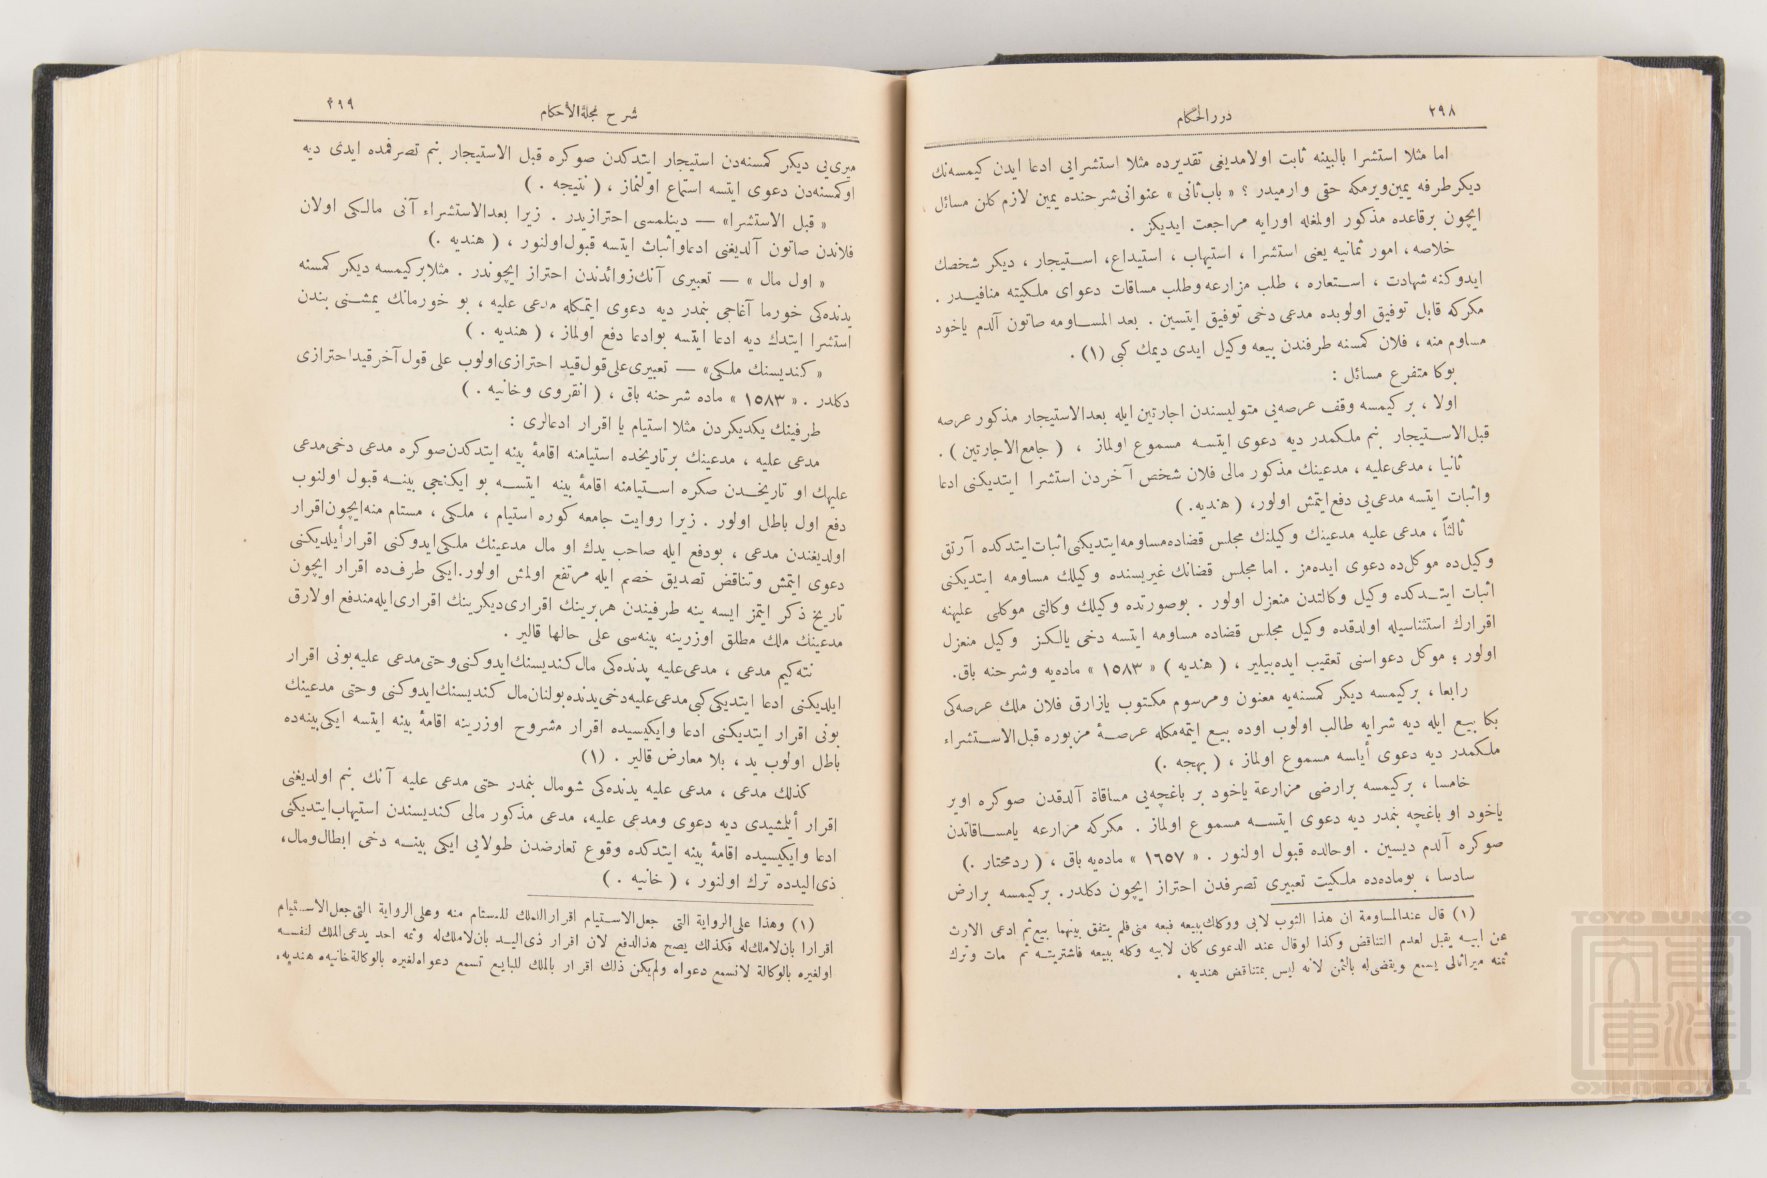 ٢٩٨
دررالحكام
اما مثلا استشرا بالبينه ثابت اولامديغى تقديرده مثلا استشرايى ادعا ايدن كيمسه‌نك
ديكر طرفه يمين‌ويرمكه حقى وارميدر ؟ « باب‌ثانى » عنوانى شرحنده يمين لازم كلن مسائل
ايچون برقاعده مذكور اولمغله اورايه مراجعت ايديكز .
خلاصه ، امور ثمانيه يعنى استشرا ، استيهاب ، استيداع، استيجار ، ديكر شخصك
ايدوكنه شهادت ، استعاره ، طلب مزارعه وطلب مساقات دعواى ملكيته منافيدر .
مكركه قابل توفيق اولوبده مدعى دخى توفيق ايتسين . بعد المساومه صاتون آلدم ياخود
مساوم منه ، فلان كمسنه طرفندن بيعه وكيل ايدى ديمك كبى (١) .
بوكا متفرع مسائل :
اولا ، بر كيمسه وقف عرصه‌يى متوليسندن اجارتين ايله بعدالاستيجار مذكور عرصه
قبل‌الاستيجار بنم ملكمدر ديه دعوى ايتسه مسموع اولماز ، ( جامع‌الاجارتين ) .
ثانيا ، مدعى‌عليه ، مدعينك مذكور مالى فلان شخص آخردن استشرا ايتديكنى ادعا
واثبات ايتسه مدعى‌يى دفع‌ايتمش اولور، ( هنديه. )
ثالثاً ، مدعى عليه مدعينك وكيلنك مجلس قضاده‌مساومه‌ايتديكنى‌اثبات‌ايتدكده آرتق
وكيل‌ده موكل‌ده دعوى ايده‌مز . اما مجلس قضانك غيريسنده وكيلك مساومه ايتديكنى
اثبات ايتدكده وكيل وكالتدن منعزل اولور . بوصورتده وكيلك وكالتى موكلى عليهنه
اقرارك استثناسيله اولدقده وكيل مجلس قضاده مساومه ايتسه دخى يالكز وكيل منعزل
اولور ؛ موكل دعواسنى تعقيب ايده‌بيلير ، ( هنديه ) « ١٥٨٣ » ماده‌يه وشرحنه باق.
رابعا ، بركيمسه ديكر كمسنه‌يه معنون ومرسوم مكتوب يازارق فلان ملك عرصه‌كى
بكا بيع ايله ديه شرايه طالب اولوب اوده بيع ايتمه‌مكله عرصهٔ مزبوره قبل‌الاستشراء
ملكمدر ديه دعوى أيلسه مسموع اولماز ، ( بهجه .)
خامسا ، بركيمسه برارضى مزارعة ياخود بر باغچه‌يى مساقاة آلدقدن صوكره اوير
ياخود او باغچه بنمدر ديه دعوى ايتسه مسموع اولماز . مكركه مزارعه يامساقاتدن
صوكره آلدم ديسين . اوحالده قبول اولنور . « ١٦٥٧ » ماده‌يه باق ، ( ردمحتار .)
سادسا ، بوماده‌ده ملكيت تعبيرى تصرفدن احتراز ايچون دكلدر. بركيمسه برارض
(١) قال عندالمساومة ان هذا الثوب لابى ووكلك‌ببيعه فبعه منى‌فلم يتفق بينهما بيع‌ثم ادعى الارث
عن ابيه يقبل لعدم التناقض وكذا لوقال عند الدعوى كان لابيه وكله ببيعه فاشتريته ثم مات وترك
ثمنه ميراثالى يسمع ويقضى‌له بالثمن لانه ليس بمتناقض هنديه .
٢٩٩
شرح مجلةالأحكام
ميرى‌يى ديكر كمسنه‌دن استيجار ايتدكدن صوكره قبل الاستيجار بنم تصرفمده ايدى ديه
اوكمسنه‌دن دعوى ايتسه استماع اولنماز ، ( نتيجه . )
« قبل الاستشرا» — دينلمسى احترازيدر . زيرا بعدالاستشراء آنى مالكى اولان
فلاندن صاتون آلديغنى ادعاواثبات ايتسه قبول‌اولنور ، ( هنديه .)
« اول مال » — تعبيرى آنك‌زوائدندن احتراز ايچوندر . مثلابركيمسه ديكر كمسنه
يدنده‌كى خورما آغاجى بنمدر ديه دعوى ايتمكله مدعى عليه ، بو خورمانك يمشنى بندن
استشرا ايتدك ديه ادعا ايتسه بوادعا دفع اولماز ، ( هنديه . )
« كنديسنك ملكى» — تعبيرى‌على‌قول‌قيد احترازى‌اولوب على قول‌آخرقيداحترازى
دكلدر . « ١٥٨٣ » ماده شرحنه باق ، ( انقروى وخانيه . )
طرفينك يكديكردن مثلا استيام يا اقرار ادعالرى :
مدعى عليه ، مدعينك برتاريخده استيامنه اقامهٔ بينه ايتدكدن‌صوكره مدعى دخى‌مدعى
عليهك او تاريخدن صكره استيامنه اقامهٔ بينه ايتسه بو ايكنجى بينه قبول اولنوب
دفع اول باطل اولور . زيرا روايت جامعه كوره استيام ، ملكى ، مستام منه‌ايچون‌اقرار
اولديغندن مدعى ، بودفع ايله صاحب يدك او مال مدعينك ملكى‌ايدوكنى اقرارأيلديكنى
دعوى ايتمش وتناقض تصديق خصم ايله مرتفع اولمش اولور.ايكى طرف‌ده اقرار ايچون
تاريخ ذكر ايتمز ايسه ينه طرفيندن هربرينك اقرارى‌ديكرينك اقرارى‌ايله‌مندفع اولارق
مدعينك ملك مطلق اوزرينه بينه‌سى على حالها قالير .
نته‌كيم مدعى ، مدعى‌عليه يدنده‌كى مال‌كنديسنك‌ايدوكنى‌وحتى‌مدعى عليه‌بونى اقرار
ايلديكنى ادعا ايتديكى‌كبى‌مدعى‌عليه‌دخى‌يدنده‌بولنان‌مال كنديسنك‌ايدوكنى وحتى مدعينك
بونى اقرار ايتديكنى ادعا وايكيسيده اقرار مشروح اوزرينه اقامهٔ بينه ايتسه ايكى‌بينه‌ده
باطل اولوب يد ، بلا معارض قالير . (١)
كذلك مدعى ، مدعى عليه يدنده‌كى شومال بنمدر حتى مدعى عليه آنك بنم اولديغنى
اقرار أيلمشيدى ديه دعوى ومدعى عليه، مدعى مذكور مالى كنديسندن استيهاب‌ايتديكنى
ادعا وايكيسيده اقامهٔ بينه ايتدكده وقوع تعارضدن طولايى ايكى بينه دخى ابطال‌ومال،
ذى‌اليدده ترك اولنور ، ( خانيه . )
(١) وهذا على‌الرواية التى جعل‌الاستيام اقراراللملك للمستام منه وعلى‌الرواية التى‌جعل‌الاستيام
اقرارا بان‌لاملك‌له فكذلك يصح هذالدفع لان اقرار ذى‌اليد بان‌لاملك‌له وثمه احد يدعى‌الملك لنفسه
اولغيره بالوكالة لاتسمع دعواه ولم‌يكن ذلك اقرار بالملك للبايع تسمع دعواه‌لغيره بالوكالةخانيه، هنديه،
TOYO BUNKO
東洋文庫
TOYO BUNKO